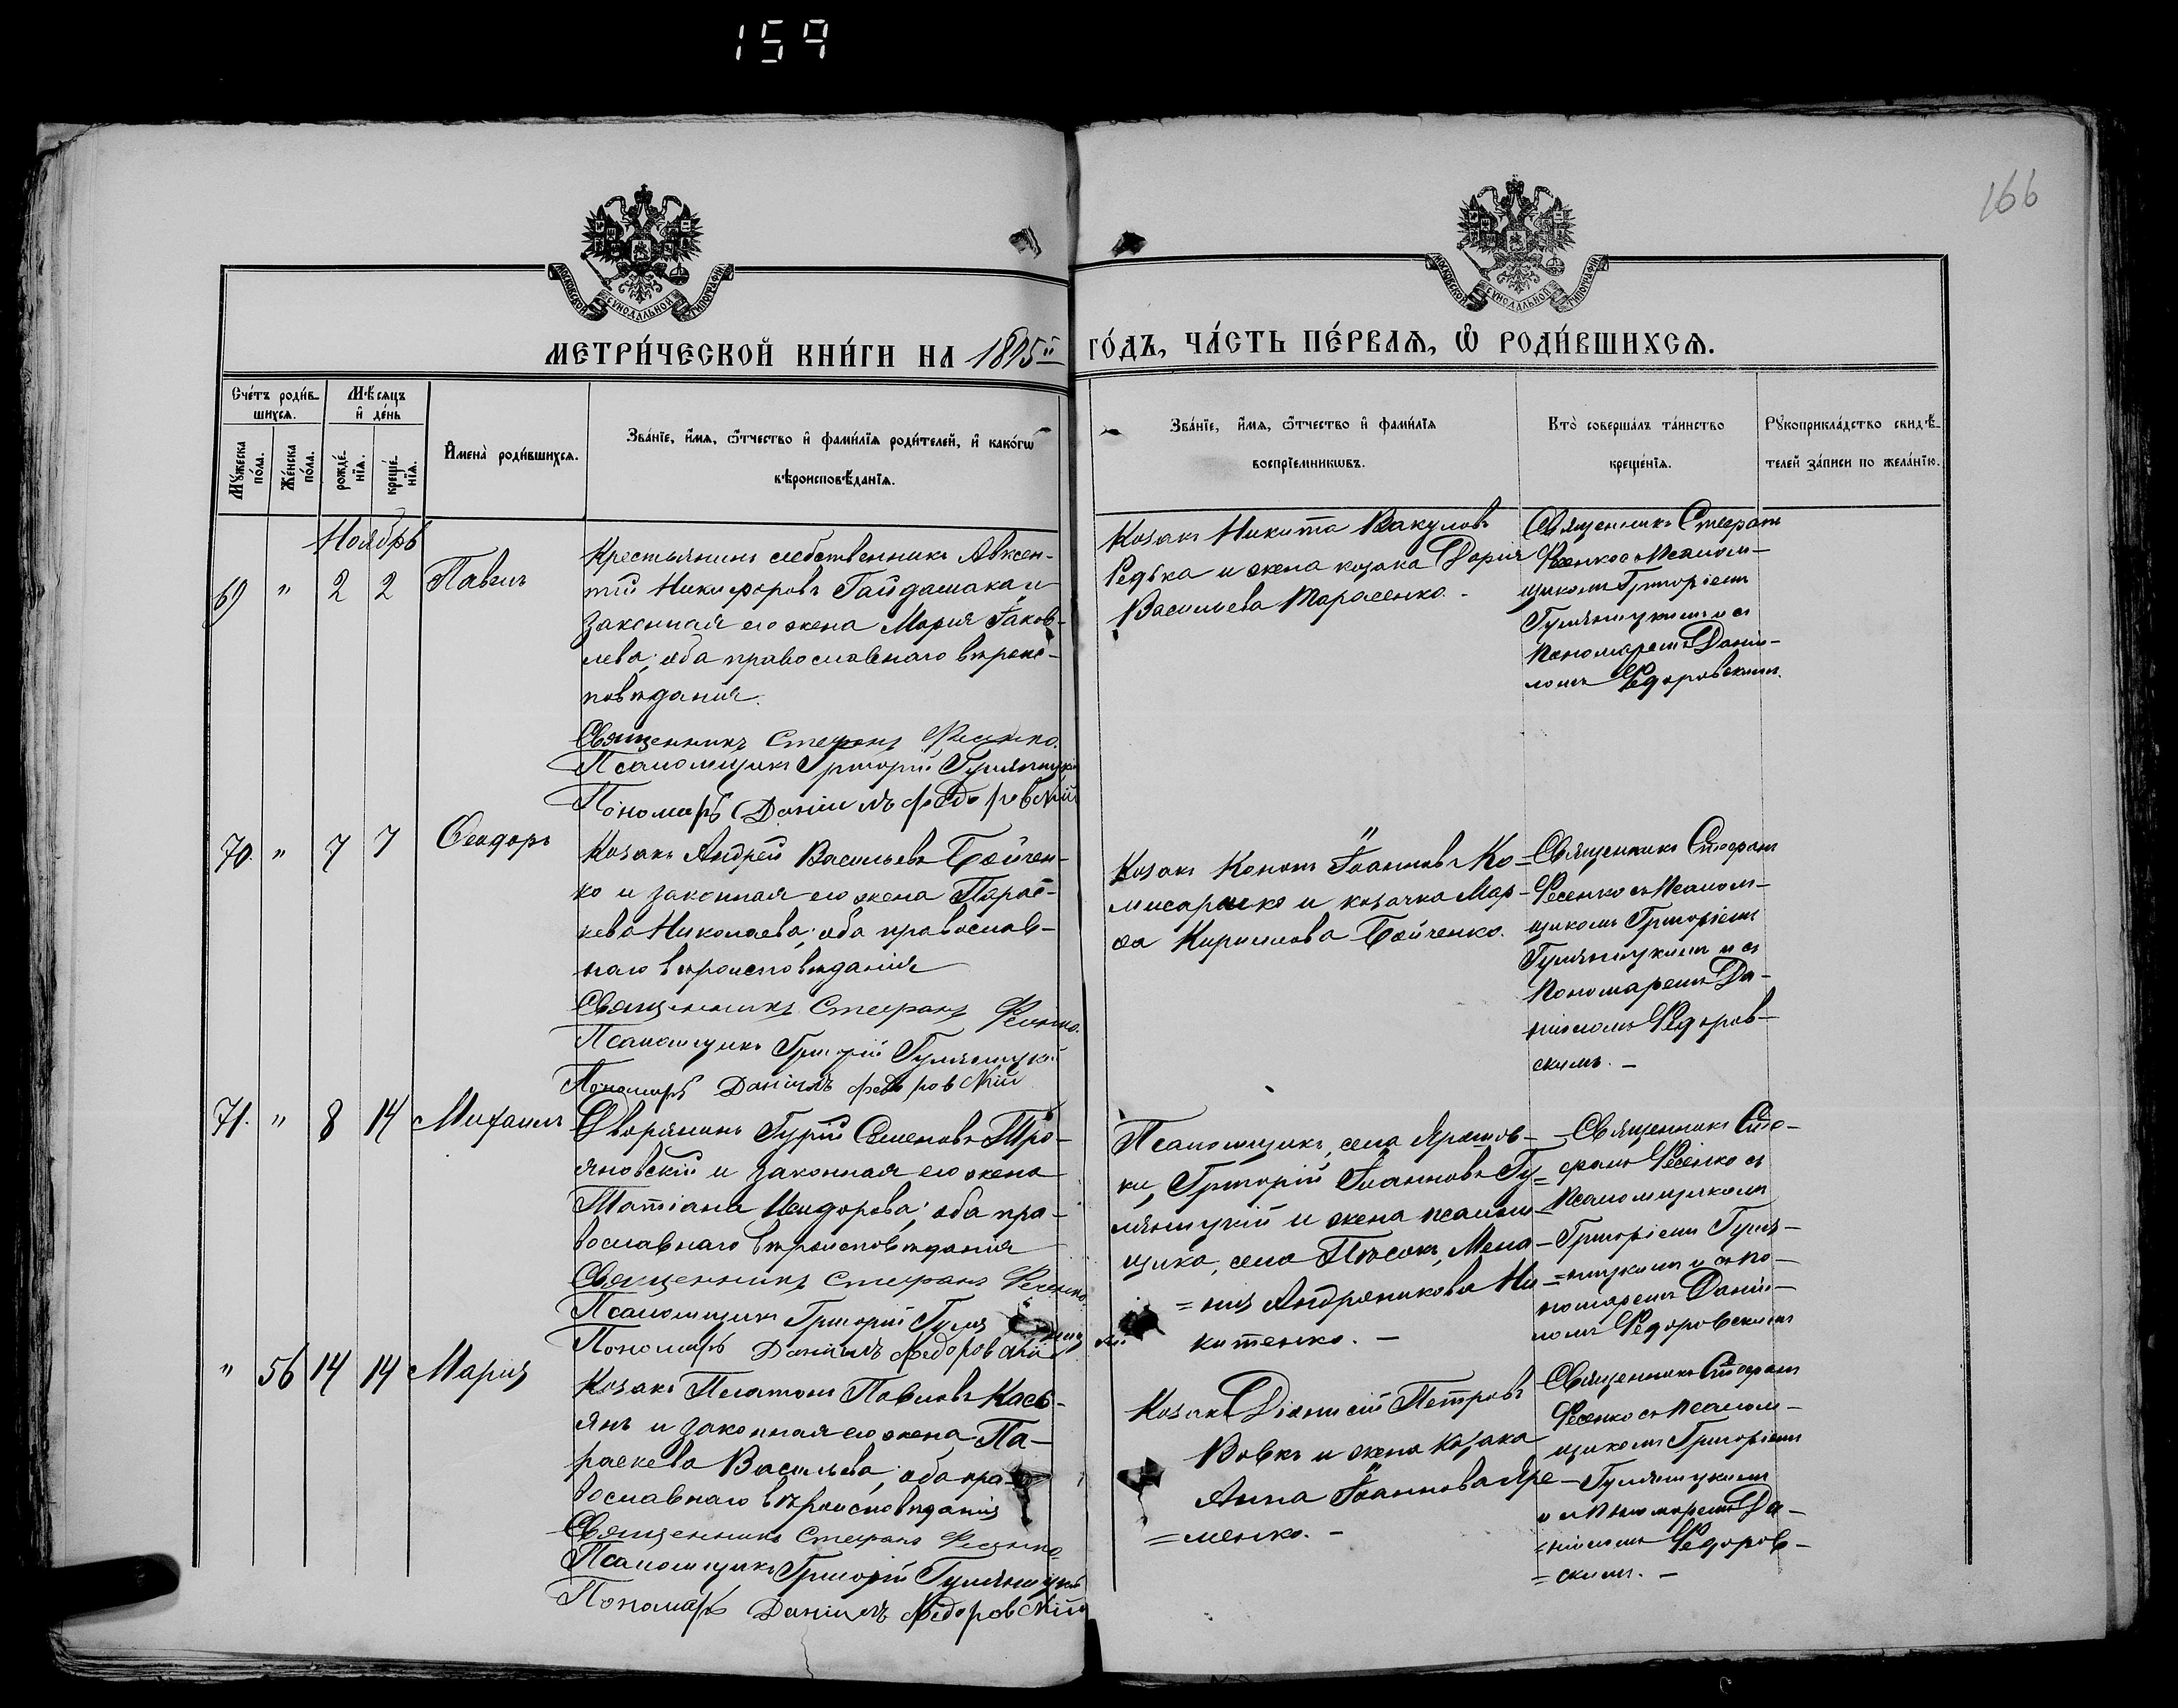 159
166
МОСКОВСКОЙ СѴНОДАЛЬНОЙ ТИПОГРАФІИ
МОСКОВСКОЙ СѴНОДАЛЬНОЙ ТИПОГРАФІИ
МЕТРИ́ЧЕСКОЙ КНИ́ГИ НА 1895й ГО́ДЪ, ЧА́СТЬ ПЕ́РВАѦ, Ѽ РОДИ́ВШИХСѦ.
Сче́тъ роди́в-
шихсѧ.
Мꙋ́жеска
по́ла.
Же́нска
по́ла.
Мѣ́сяцъ
и҆ де́нь
рожде́-
нїѧ.
креще́-
нїѧ.
И҆мена̀ роди́вшихсѧ.
Зва́нїе, и҆́мѧ, ѻ҆́тчество и҆ фами́лїѧ роди́телей, и҆ како́гѡ
вѣроисповѣ́данїѧ.
Зва́нїе, и҆́мѧ, ѻ҆́тчество и҆ фами́лїѧ
воспрїе́мникѡвъ.
Кто̀ соверша́лъ та́инство
креще́нїѧ.
Рꙋкоприкла́дство свидѣ́-
телей за́писи по жела́нїю.
Ноябрь
69 " 2 2 Павелъ
Крестьянинъ собственникъ Авксен-
тій Никифоровъ Гайдамака и
законная его жена Марія Іаков-
лева; оба православнаго вѣроис-
повѣданія.
Священникъ Стефанъ Фесенко.
Псаломщикъ Григорій Гуляницкій
Пономарь Даніилъ Федоровскій
Козакъ Никита Вакуловъ
Редька и жена козака Дарія
Васильева Тарасенко.
Священникъ Стефанъ
Фесенко съ псалом-
щикомъ Григоріемъ
Гуляницкимъ и съ
пономаремъ Дани-
ломъ Федоровскимъ.
70. " 7 7 Феодоръ
Козакъ Андрей Васильевъ Бойчен-
ко и законная его жена Парас-
кева Николаева; оба православ-
наго вѣроисповѣданія
Священникъ Стефанъ Фесенко.
Псаломщикъ Григорій Гуляницкій
Пономарь Даніилъ Федоровскій
Козакъ Кононъ Іоанновъ Ко-
мисаренко и козачка Мар-
фа Кирилова Бойченко.
Священникъ Стефанъ
Фесенко съ псалом-
щикомъ Григоріемъ
Гуляницкимъ и съ
пономаремъ Да-
ніиломъ Федоров-
скимъ. –
71. " 8 14 Михаилъ
Дворянинъ Гурій Семеновъ Тро-
яновскій и законная его жена
Татіана Исидорова; оба пра-
вославнаго вѣроисповѣданія
Священникъ Стефанъ Фесенко.
Псаломщикъ Григорій Гуляницкій
Пономарь Даніилъ Федоровскій
Псаломщикъ, села
ки, Григорій Іоанновъ Гу-
ляницкій и жена псалом-
щика, села Пѣсокъ, Мела-
=нія Андроникова Ни-
китенко. –
Священникъ Сте-
фанъ Фесенко съ
псаломщикомъ
Григоріемъ Гуля-
=ницкимъ и съ по-
номаремъ Даніи-
ломъ Федоровскимъ
" 56 14 14 Марія
Козакъ Платонъ Павловъ Кась-
янъ и законная его жена Па-
раскева Васильева; оба пра-
вославнаго вѣроисповѣданія
Священникъ Стефанъ Фесенко.
Псаломщикъ Григорій Гуляницкій
Пономарь Даніилъ Федоровскій
Козакъ Діонисій Петровъ
Вовкъ и жена козака
Анна Іоаннова Яре-
=менко. –
Священникъ Стефанъ
Фесенко съ псалом-
щикомъ Григоріемъ
Гуляницкимъ
и съ пономаремъ Да-
=ніиломъ Федоров-
=скимъ. –